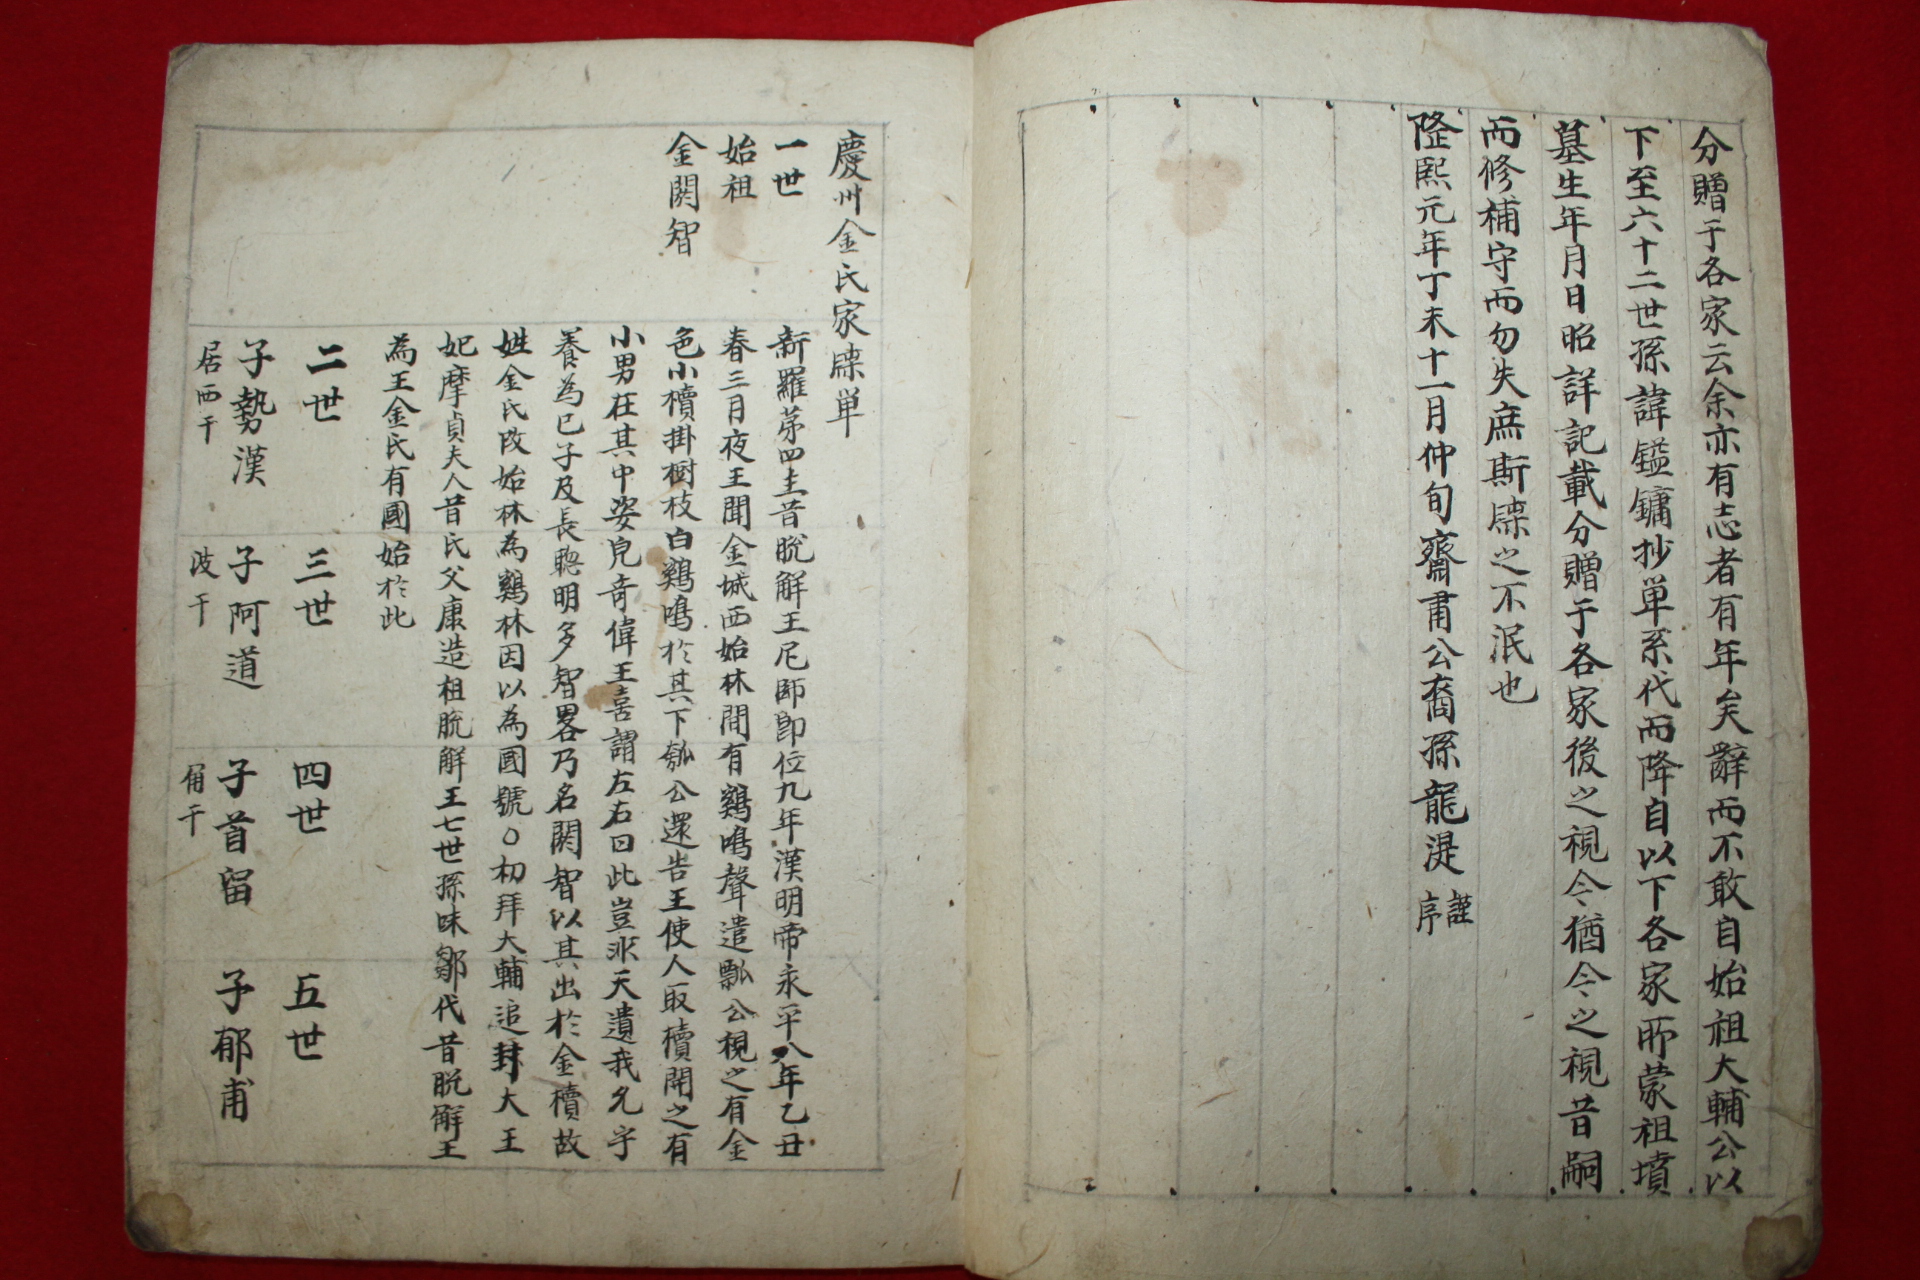 分贈于各家云余亦有志者有年矣辭而不敢自始祖大輔公以
下至六十二世孫諱鎰鏞抄単系代而降自以下各家所蒙祖墳
墓生年月日昭詳記載分贈于各家後之視今猶今之視昔嗣
而修補守而勿失庶斯牒之不泯也
隆熙元年丁未十一月仲旬齋肅公裔孫龍湜謹序
慶州金氏家牒単
一世
始祖
金閼智
新羅苐四主昔脫解王尼師卽位九年漢明帝永平八年乙丑
春三月夜王聞金城西始林間有鷄鳴聲遣瓢公視之有金
色小櫝掛樹枝白鷄鳴於其下瓠公還告王使人取櫝開之有
小男在其中姿皃奇偉王喜謂左右曰此豈非天遺我允乎
養為己子及長聰明多智畧乃名閼智以其出於金櫝故
姓金氏改始林為鷄林因以為國號○初拜大輔追封大王
妃摩貞夫人昔氏父康造祖脫解王七世孫味鄒代昔脫解王
為王金氏有國始於此
二世
子勢漢
居西干
三世
子阿道
波干
四世
子首留
角干
五世
子郁甫